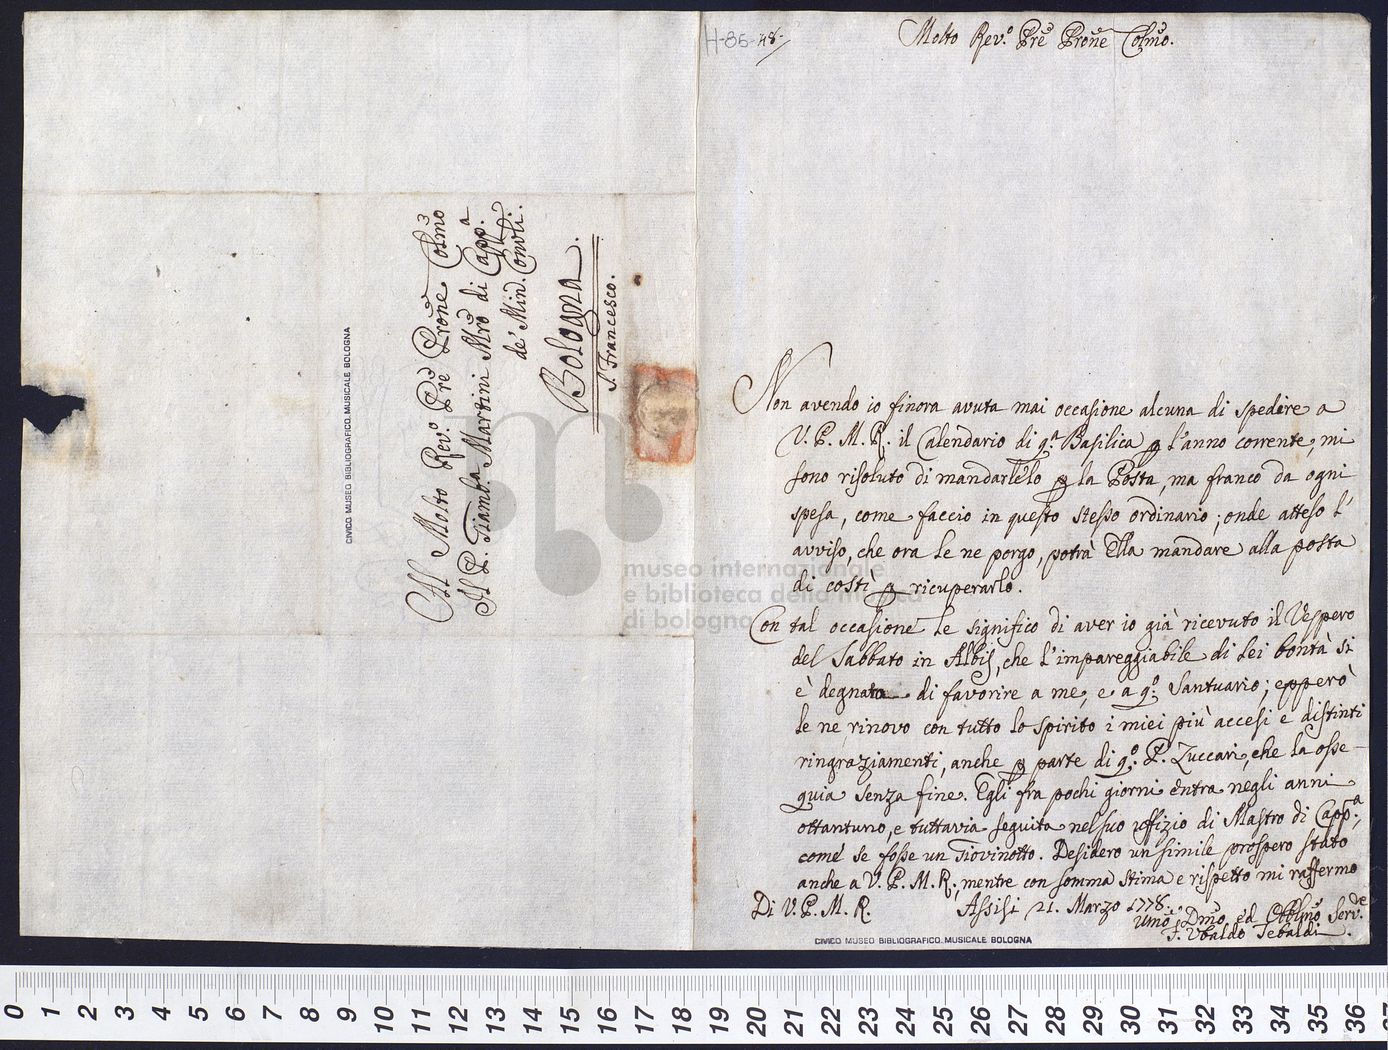 H-85-48-
Molto Rev.º Pre Prone Colmo.
Non avendo io finora avuta mai occasione alcuna di spedire a
V. P. M. R. il Calendario di q.ª Basilica p l'anno corrente, mi
sono risoluto di mandarlelo p la Posta, ma franco da ogni
spesa, come faccio in questo stesso ordinario; onde atteso l'
avviso, che ora le ne porgo, potrà Ella mandare alla posta
di costì p ricuperarlo.
Con tal occasione le significo di aver io già ricevuto il Vespero
del Sabbato in Albis, che l'impareggiabile di Lei bontà si
è degnata di favorire a me, e a q.º Santuario; epperò
le ne rinovo con tutto lo spirito i miei più accesi e distinti
ringraziamenti, anche p parte di q.º P. Zuccari, che la osse-
quia senza fine. Egli fra pochi giorni entra negli anni
ottantuno, e tuttavia seguita nel suo uffizio di Mastro di Capp.ª,
come se fosse un Giovinotto. Desidero un simile prospero stato
anche a V. P. M. R., mentre con somma stima e rispetto mi raffermo
Di V. P. M. R. Assisi 21. Marzo 1778.
Umo Dmo ed Obblmo Serv.e
F. Ubaldo Tebaldi
Al Molto Rev.º Pre Prone Colmo
Il P. Giamb.a Martini Mro di Capp.a
de' Min. Convli.
Bologna.
S. Francesco.
CIVICO MUSEO BIBLIOGRAFICO MUSICALE BOLOGNA
CIVICO MUSEO BIBLIOGRAFICO MUSICALE BOLOGNA
museo internazionale
e biblioteca della musica
di bologna
0 1 2 3 4 5 6 7 8 9 10 11 12 13 14 15 16 17 18 19 20 21 22 23 24 25 26 27 28 29 30 31 32 33 34 35 36 37